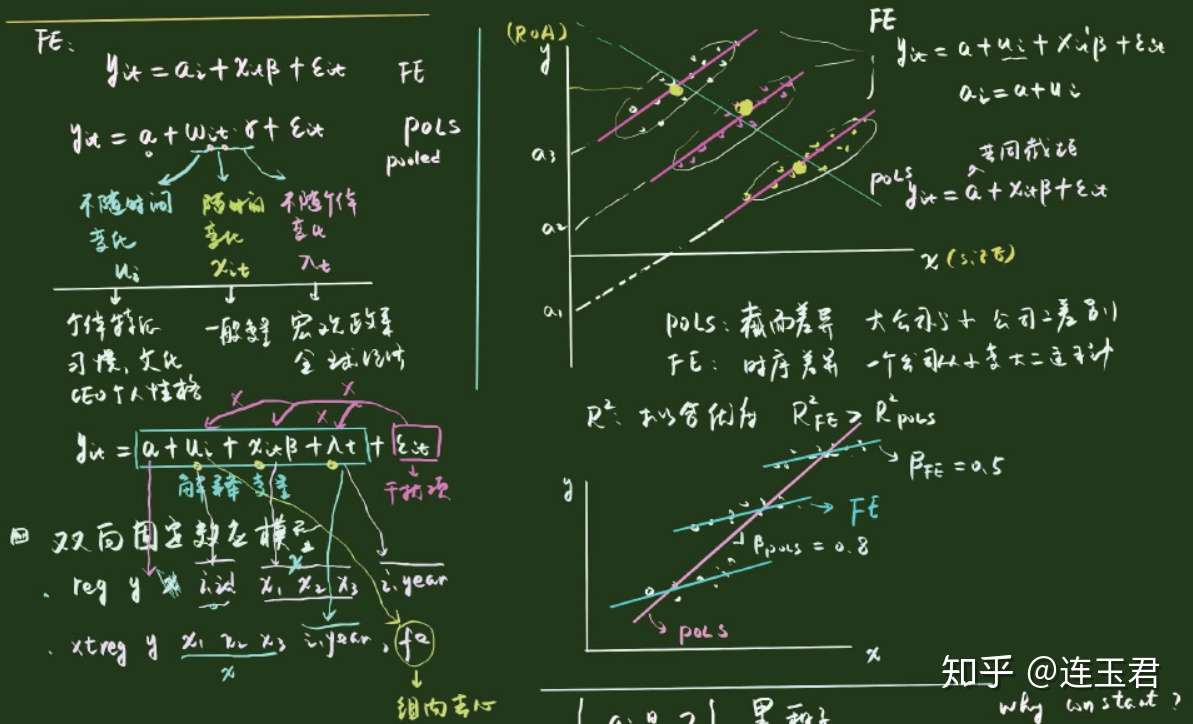 FE:
y_it = a_i + x_it β + ε_it FE
y_it = a + ω_it γ + ε_it POLS
pooled
不随时间 随时间 不随个体
变化 变化 变化
u_i x_it λ_t
个体特征 一般变量 宏观政策
习惯、文化 全球经济
CEO个人性格
y_it = a + u_i + x_it β + λ_t + ε_it
解释变量 干扰项
双向固定效应模型
. reg y i.id x_1 x_2 x_3 i.year
. xtreg y x_1 x_2 x_3 i.year, fe
x
组内去心
(ROA)
y
a_3
a_2
a_1
x (size)
FE
y_it = a + u_i + x_it' β + ε_it
a_i = a + u_i
共同截距
POLS y_it = a + x_it β + ε_it
POLS: 截面差异 大公司与小公司之差别
FE: 时序差异 一个公司从小变大
R²: 拟合优度 R²_FE > R²_POLS
y
β_FE = 0.5
FE
β_POLS = 0.8
POLS
x
知乎 @连玉君
why constant ?